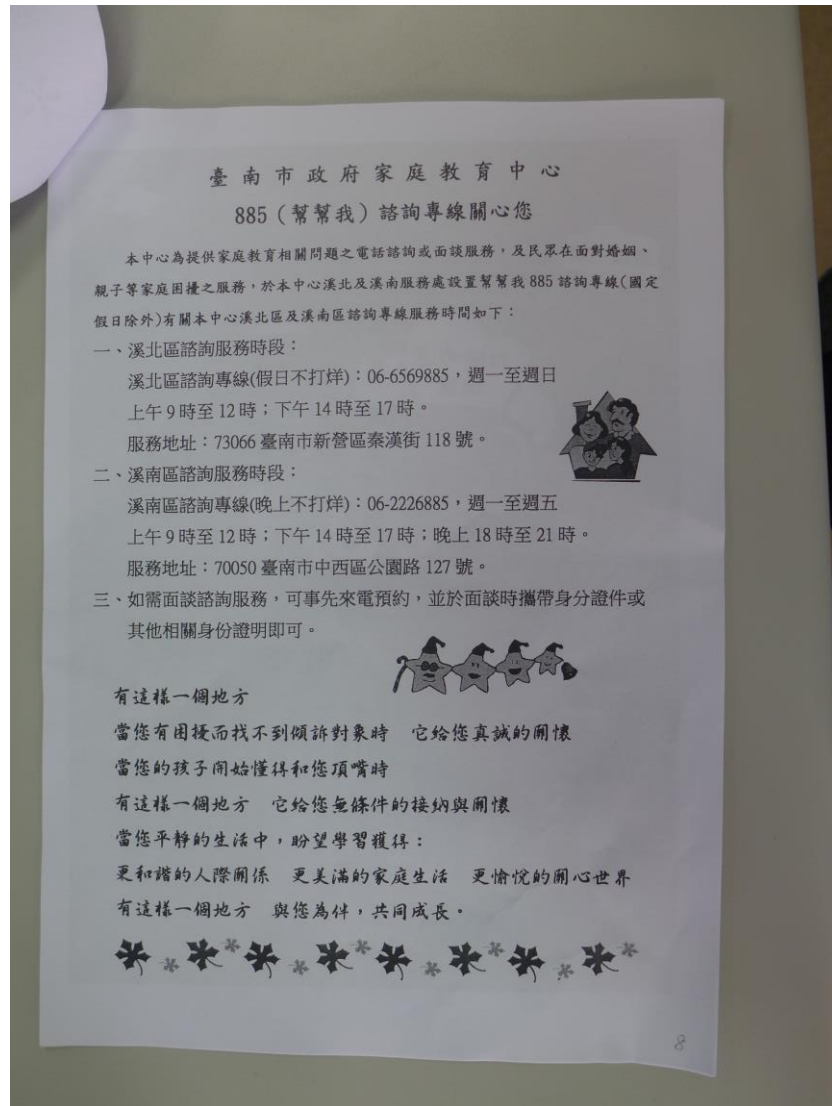 臺南市政府家庭教育中心
885（幫幫我）諮詢專線關心您
本中心為提供家庭教育相關問題之電話諮詢或面談服務，及民眾在面對婚姻、
親子等家庭困擾之服務，於本中心溪北及溪南服務處設置幫幫我885諮詢專線(國定
假日除外)有關本中心溪北區及溪南區諮詢專線服務時間如下：
一、溪北區諮詢服務時段：
溪北區諮詢專線(假日不打烊)：06-6569885，週一至週日
上午9時至12時；下午14時至17時。
服務地址：73066臺南市新營區秦漢街118號。
二、溪南區諮詢服務時段：
溪南區諮詢專線(晚上不打烊)：06-2226885，週一至週五
上午9時至12時；下午14時至17時；晚上18時至21時。
服務地址：70050臺南市中西區公園路127號。
三、如需面談諮詢服務，可事先來電預約，並於面談時攜帶身分證件或
其他相關身份證明即可。
有這樣一個地方
當您有困擾而找不到傾訴對象時　它給您真誠的關懷
當您的孩子開始懂得和您頂嘴時
有這樣一個地方　它給您無條件的接納與關懷
當您平靜的生活中，盼望學習獲得：
更和諧的人際關係　更美滿的家庭生活　更愉悅的開心世界
有這樣一個地方　與您為伴，共同成長。
8